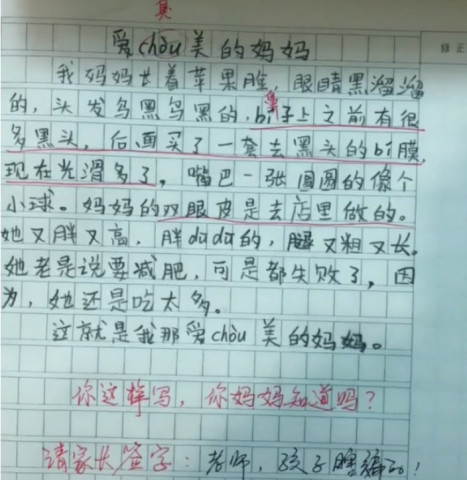 臭
爱chòu美的妈妈
我妈妈长着苹果脸,眼睛黑溜溜
的,头发乌黑乌黑的,bí子上之前有很
鼻
多黑头,后面买了一套去黑头的bí膜,
现在光滑多了,嘴巴一张圆圆的像个
小球。妈妈的双眼皮是去店里做的。
她又胖又高,胖dūdū的,腿又粗又长。
她老是说要减肥,可是都失败了,因
为,她还是吃太多。
这就是我那爱chòu美的妈妈。
你这样写,你妈妈知道吗?
请家长签字:老师,孩子瞎编的!
修正